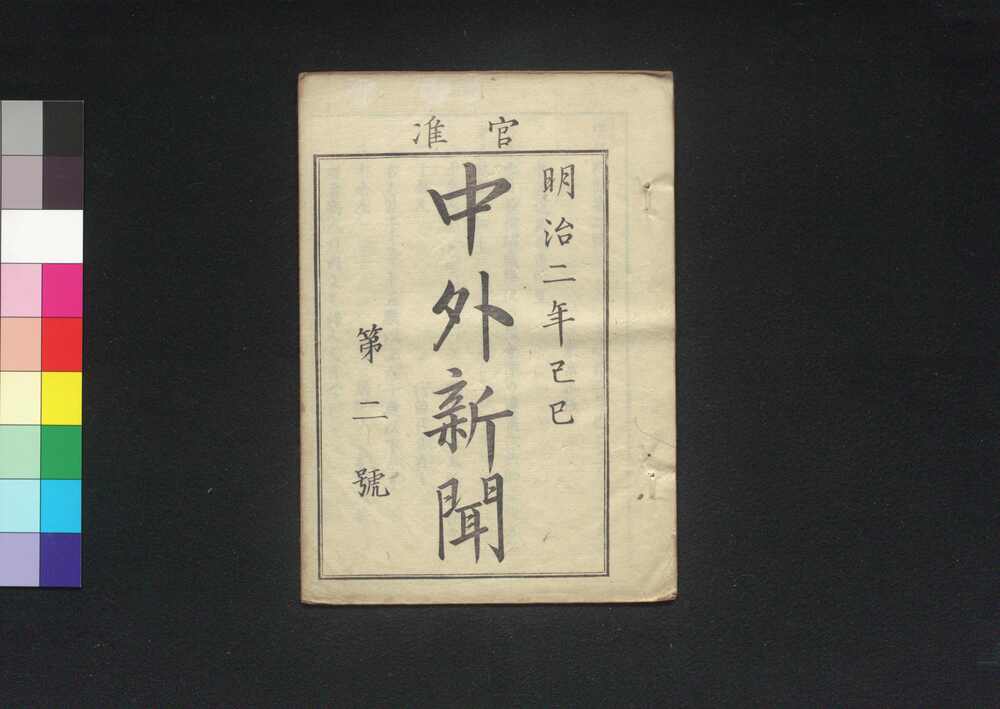 官准
明治二年己巳
中外新聞
第二號